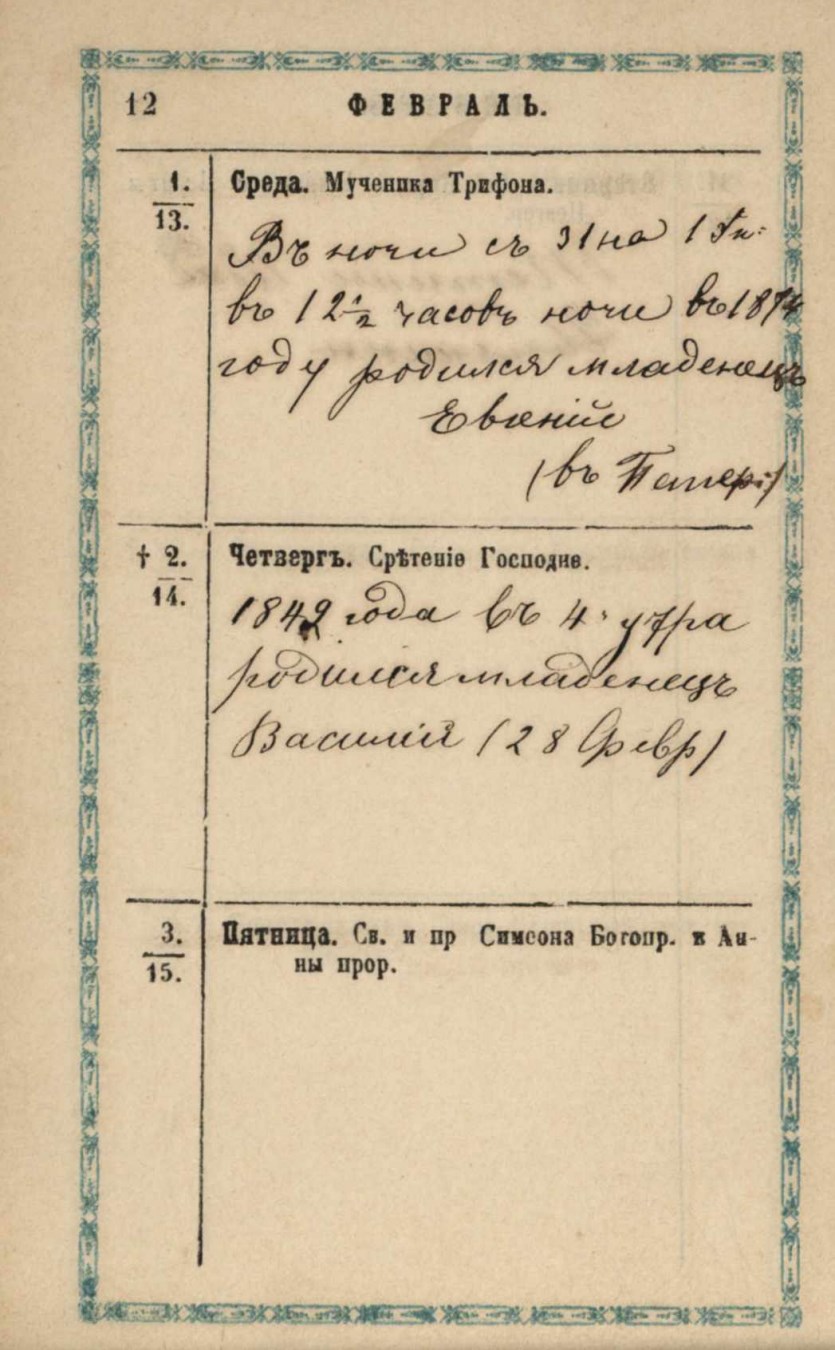 12 ФЕВРАЛЬ.
1.
13.
Среда. Мученика Трифона.
Въ ночи съ 31 на 1
въ 12 ½ часовъ ночи въ 1874
году родился младенецъ
Евгеній
(въ
† 2.
14.
Четвергъ. Срѣтеніе Господне.
1842 года въ 4 утра
родился младенецъ
Василій (28 Февр)
3.
15.
Пятница. Св. и пр Симеона Богопр. и Ан-
ны прор.